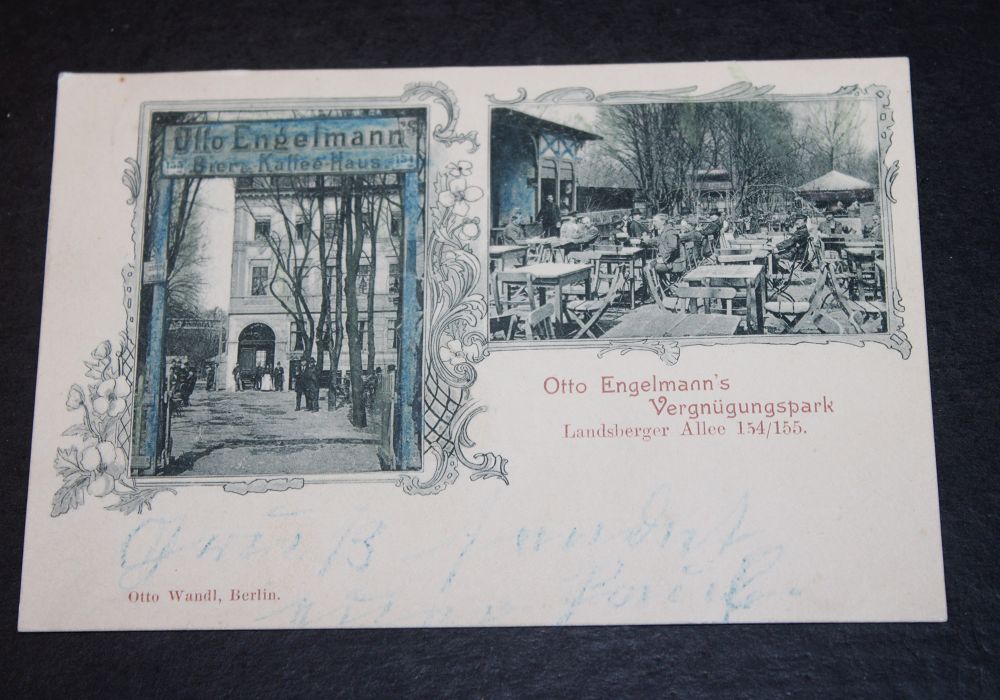 Otto Engelmann's
155 Bier-Kaffee-Haus 154
Otto Engelmann's
Vergnügungspark
Landsberger Allee 154/155.
Gruß sendet
Otto Wandl, Berlin.